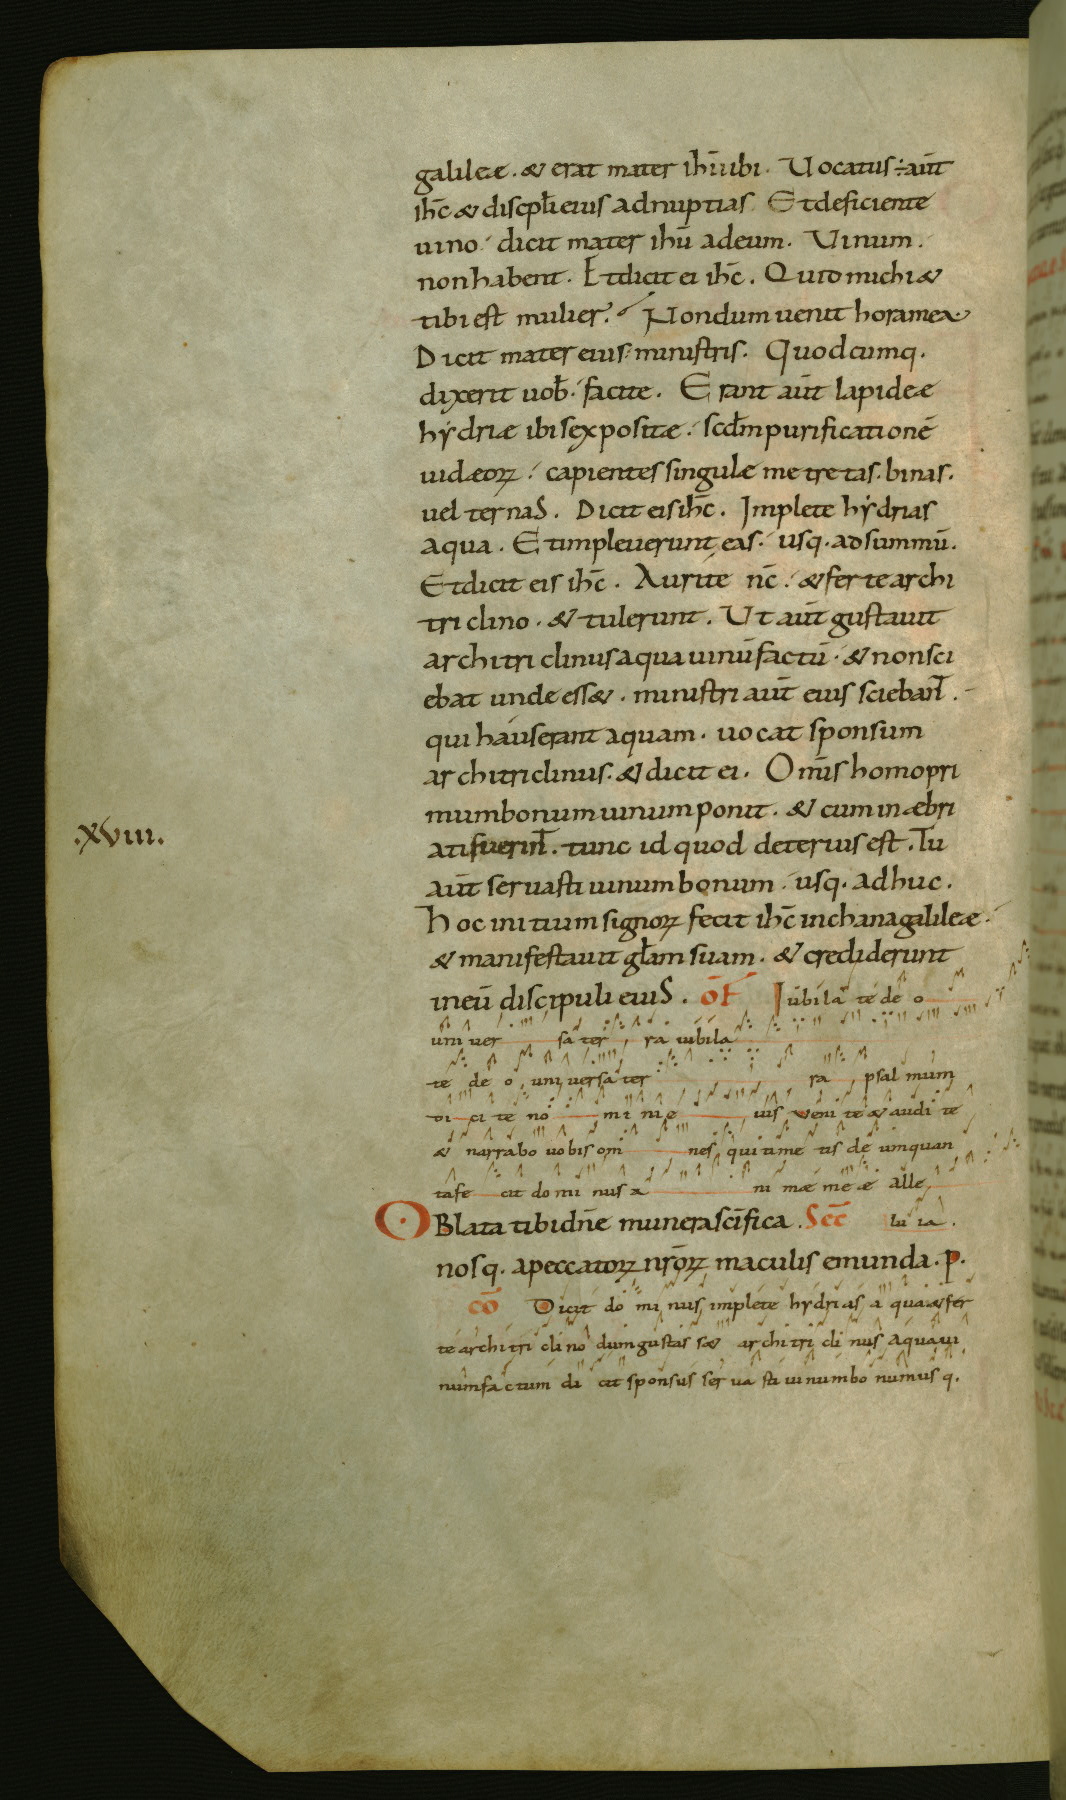 galileæ. & erat mater ihū ibi. Uocatus ÷ aūt
ihc̄ & discpłi eius adnuptias Et deficiente
uino dicit mater ihū ad eum. Uinum
non habent. Et dicit ei ihc̄. Quid michi &
tibi est mulier? Nondum uenit hora mea
Dicit mater eius ministris. Quodcumq.
dixerit uob̄. facite. Erant aūt lapideæ
hydriæ ibi sex positæ. scd̄m purificationē
iudæoꝝ. capientes singulæ metretas. binas.
uel ternas. Dicit eis ihc̄. Implete hydrias
aqua. Et impleuerunt eas. usq. ad summū.
Et dicit eis ihc̄. Aurite nc̄. & ferte archi
triclino. & tulerunt. Ut aūt gustauit
architriclinus aqua uinū factū. & non sci
ebat unde ess&. ministri aūt eius sciebant̄.
qui hauserant aquam. uocat sponsum
architriclinus. & dicit ei. Omīs homo pri
mum bonum uinum ponit. & cum inæbri
.XVIII.
ati fuerint̄. tunc id quod deterius est. Tu
aūt seruasti uinum bonum. usq. adhuc.
Hoc initium signoꝝ fecit ihc̄ in chana galileæ.
& manifestauit głam suam. & crediderunt
in eū discipuli eius. OF̄ Iubila te de o
uni uer sa ter ra iubila
te de o uni uersa ter ra psal mum
di ci te no mi ni e ius ueni te & audi te
& narrabo uobis om nes qui time tis de um quan
ta fe cit do mi nus a ni mæ me æ alle
Oblata tibi dn̄e munera scīfica. Scc̄ lu ia.
nosq. a peccatoꝝ nr̄oꝝ maculis emunda. P.
cō Dicit do mi nus implete hydrias a qua & fer
te archi tri cli no dum gustas s& archi tri cli nus aqua ui
num factum di cit sponsus ser ua sti ui num bo num us q.